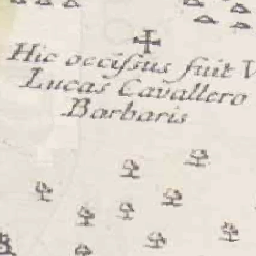 Hic occiſsus fuit V
Lucas Cavallero
Barbaris